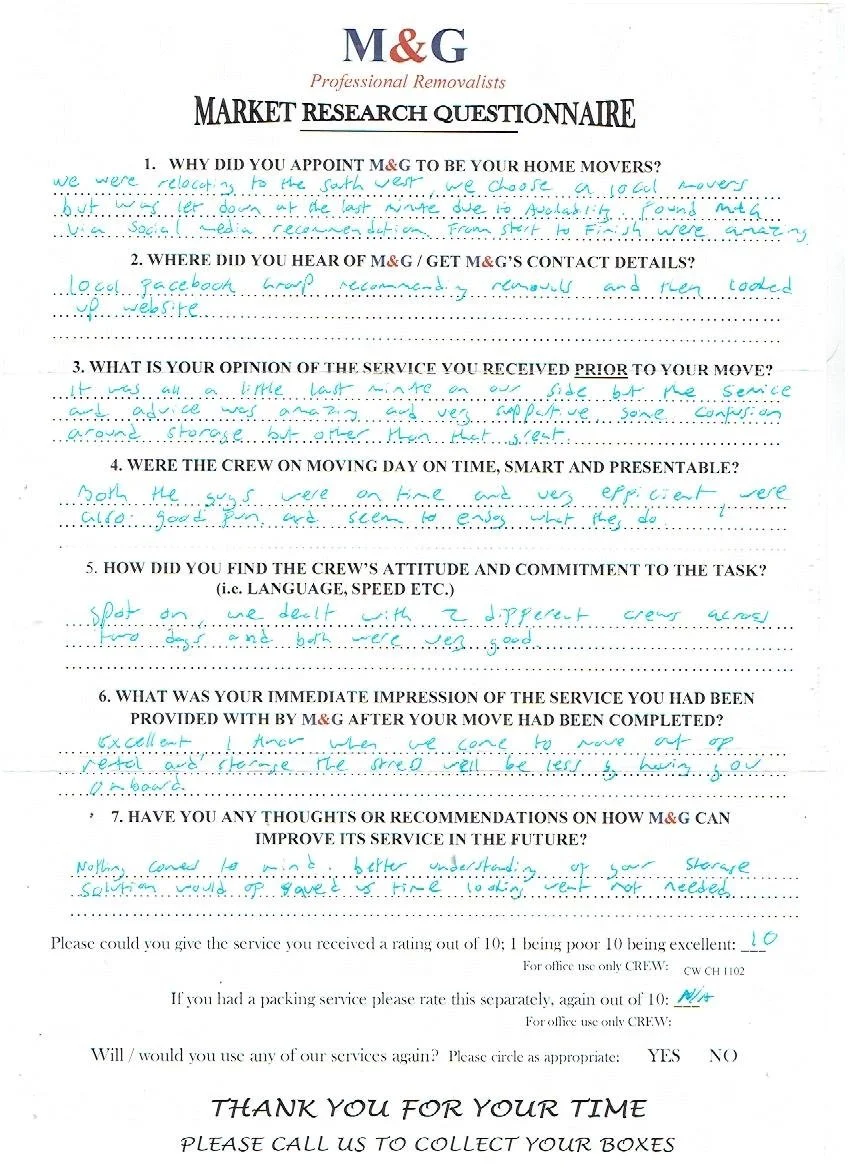 M&G
Professional Removalists
MARKET RESEARCH QUESTIONNAIRE
1. WHY DID YOU APPOINT M&G TO BE YOUR HOME MOVERS?
we were relocating to the South West, we choose a local movers
but was let down at the last minute due to Availability. Found M&G
via Social media recommendation. From start to Finish were amazing
2. WHERE DID YOU HEAR OF M&G / GET M&G'S CONTACT DETAILS?
local facebook Group recommending removals and then looked
up website
3. WHAT IS YOUR OPINION OF THE SERVICE YOU RECEIVED PRIOR TO YOUR MOVE?
It was all a little last minute on our side but the service
and advice was amazing and very supportive, some confusion
around storage but other than that great.
4. WERE THE CREW ON MOVING DAY ON TIME, SMART AND PRESENTABLE?
Both the guys were on time and very efficient, were
also good fun and seem to enjoy what they do
5. HOW DID YOU FIND THE CREW'S ATTITUDE AND COMMITMENT TO THE TASK?
(i.e. LANGUAGE, SPEED ETC.)
Spot on, we dealt with 2 different crews across
two days and both were very good.
6. WHAT WAS YOUR IMMEDIATE IMPRESSION OF THE SERVICE YOU HAD BEEN
PROVIDED WITH BY M&G AFTER YOUR MOVE HAD BEEN COMPLETED?
Excellent I know when we come to move out of
rental and storage the stress will be less by having you
onboard.
7. HAVE YOU ANY THOUGHTS OR RECOMMENDATIONS ON HOW M&G CAN
IMPROVE ITS SERVICE IN THE FUTURE?
Nothing comes to mind. better understanding of your storage
solution would of saved us time looking went not needed
Please could you give the service you received a rating out of 10; 1 being poor 10 being excellent: 10
For office use only CREW: CW CH 1102
If you had a packing service please rate this separately, again out of 10: N/A
For office use only CREW:
Will / would you use any of our services again? Please circle as appropriate: YES NO
THANK YOU FOR YOUR TIME
PLEASE CALL US TO COLLECT YOUR BOXES